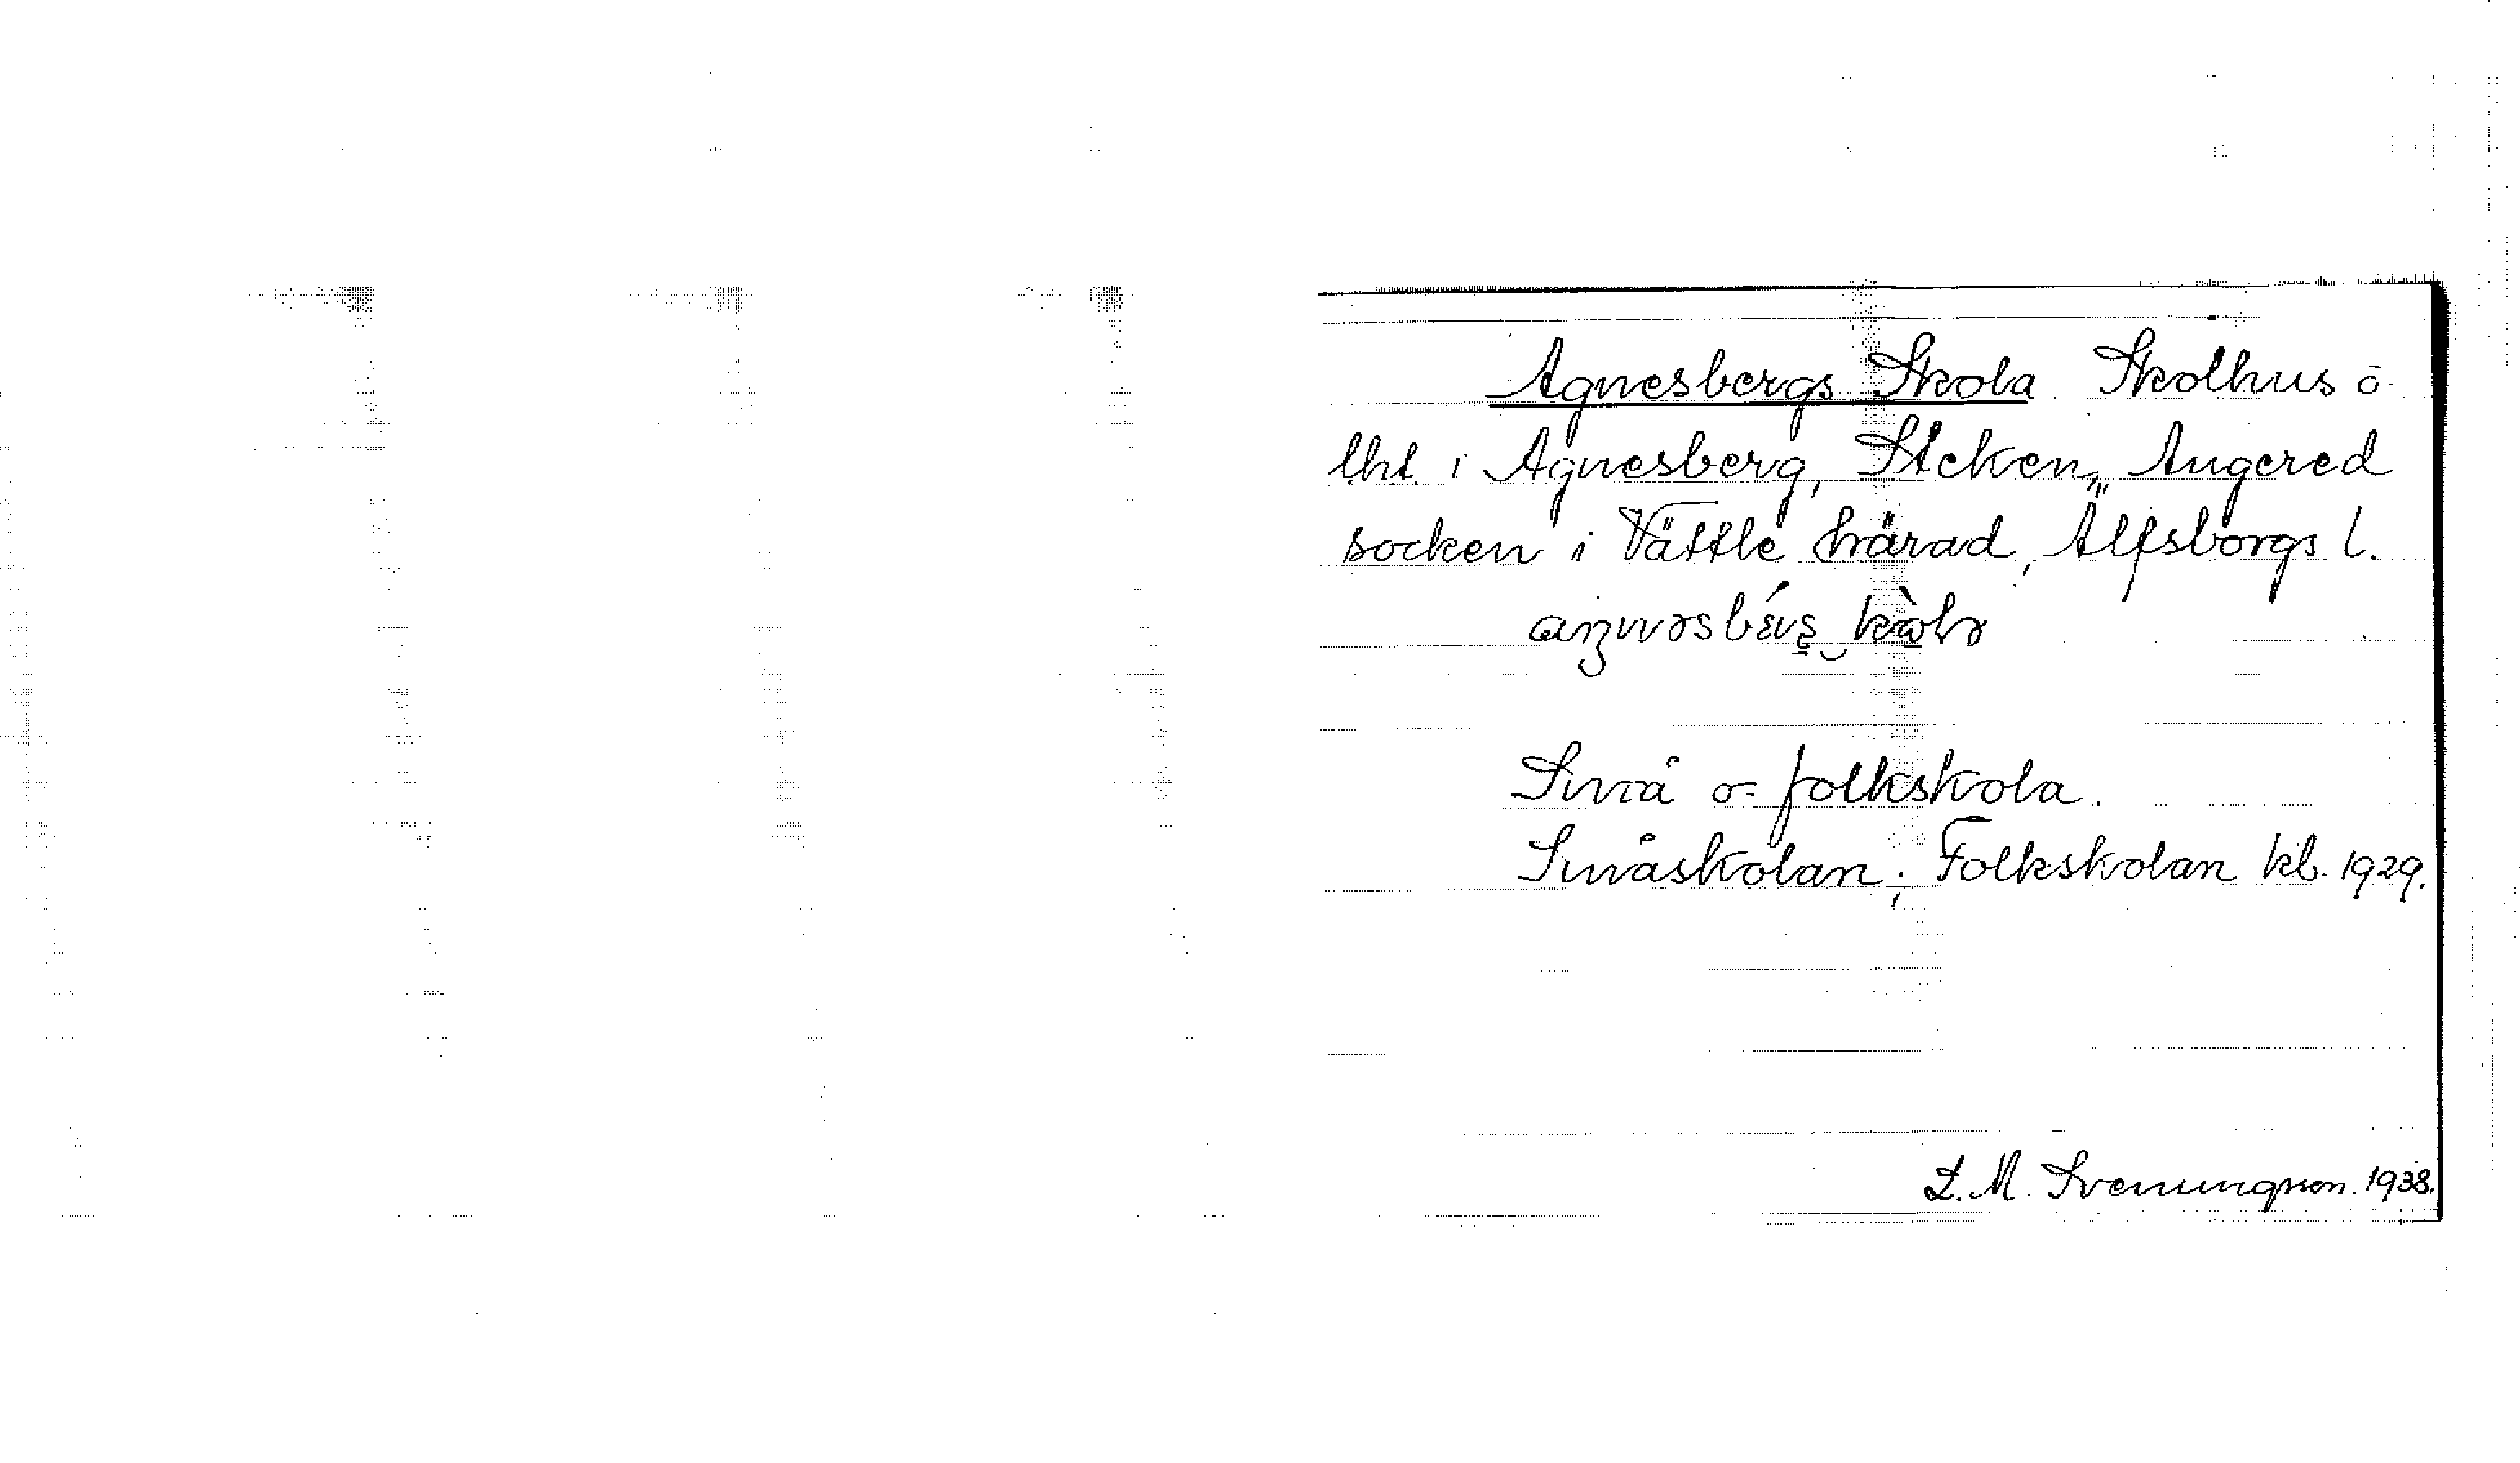 Agnesbergs Skola. Skolhus o
lht. i Agnesberg, Stcken, Angered
socken i Vättle härad, Älfsborgs l.
Små o folkskola.
Småskolan; Folkskolan kl. 1929.
L. M. Svenungsson. 1938.